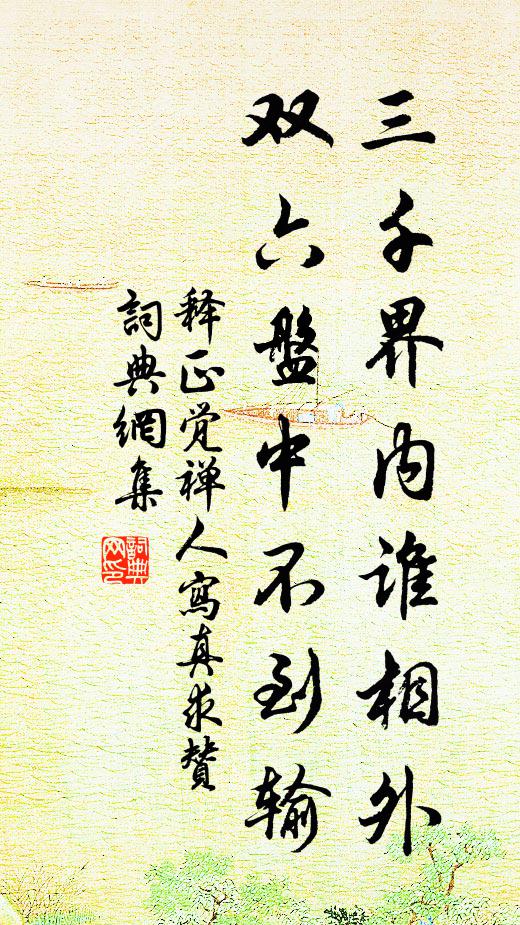 三千界内谁相外
双六盤中不到输
释正觉禅人寫真求賛
詞典網集
詞典网印